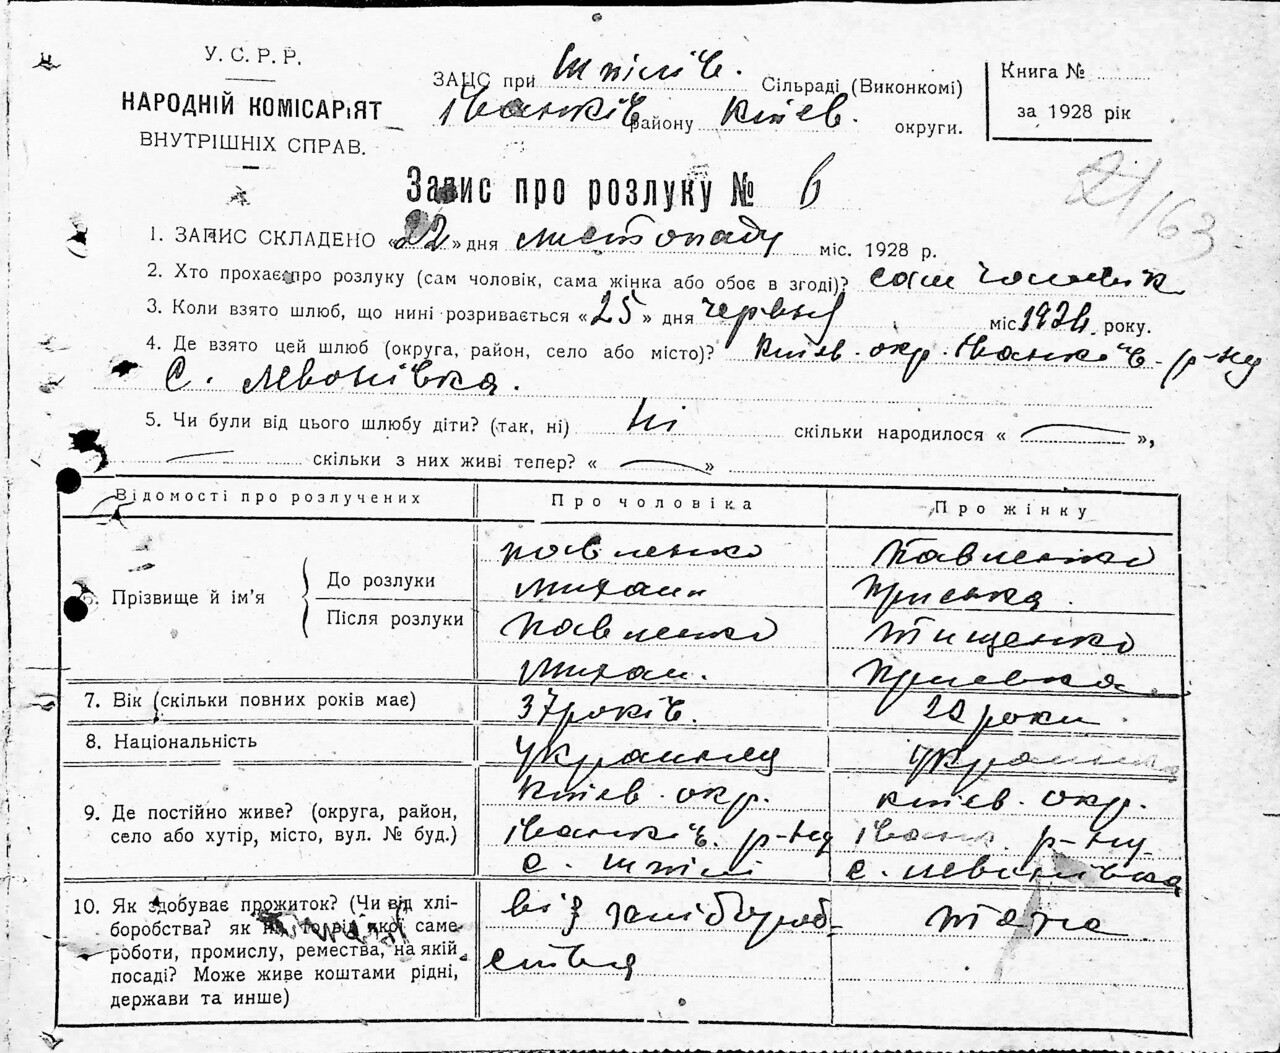 У. С. Р. Р.
НАРОДНІЙ КОМІСАРІЯТ
ВНУТРІШНІХ СПРАВ.
ЗАЦС при Шпілів. Сільраді (Виконкомі)
Іванків району Київ. округи.
Книга №
за 1928 рік
Запис про розлуку № 6
21/163
1. ЗАПИС СКЛАДЕНО «22» дня листопаду міс. 1928 р.
2. Хто прохає про розлуку (сам чоловік, сама жінка або обоє в згоді)? сам чоловік
3. Коли взято шлюб, що нині розривається «25» дня червня міс. 192 року.
4. Де взято цей шлюб (округа, район, село або місто)? Київ. окр. Іванків. р-ну
с. Левонівка.
5. Чи були від цього шлюбу діти? (так, ні) Ні скільки народилося « »,
скільки з них живі тепер? « »
Відомості про розлучених
Про чоловіка
Про жінку
6. Прізвище й ім'я
До розлуки
Після розлуки
Павленко
Михаил
Павленко
Михаи.
Павленко
Приська.
Тищенко
Приська
7. Вік (скільки повних років має)
37 років.
роки
8. Національність
Украинец
Украинка
9. Де постійно живе? (округа, район,
село або хутір, місто, вул. № буд.)
Київ. окр.
Іванків. р-ну
с. Шпілі
Київ. окр.
Іванк. р-ну
с. Левонівка
10. Як здобуває прожиток? (Чи від хлі-
боробства? як ні, то від якої саме
роботи, промислу, ремества, на якій
посаді? Може живе коштами рідні,
держави та инше)
від хлібороб-
ства